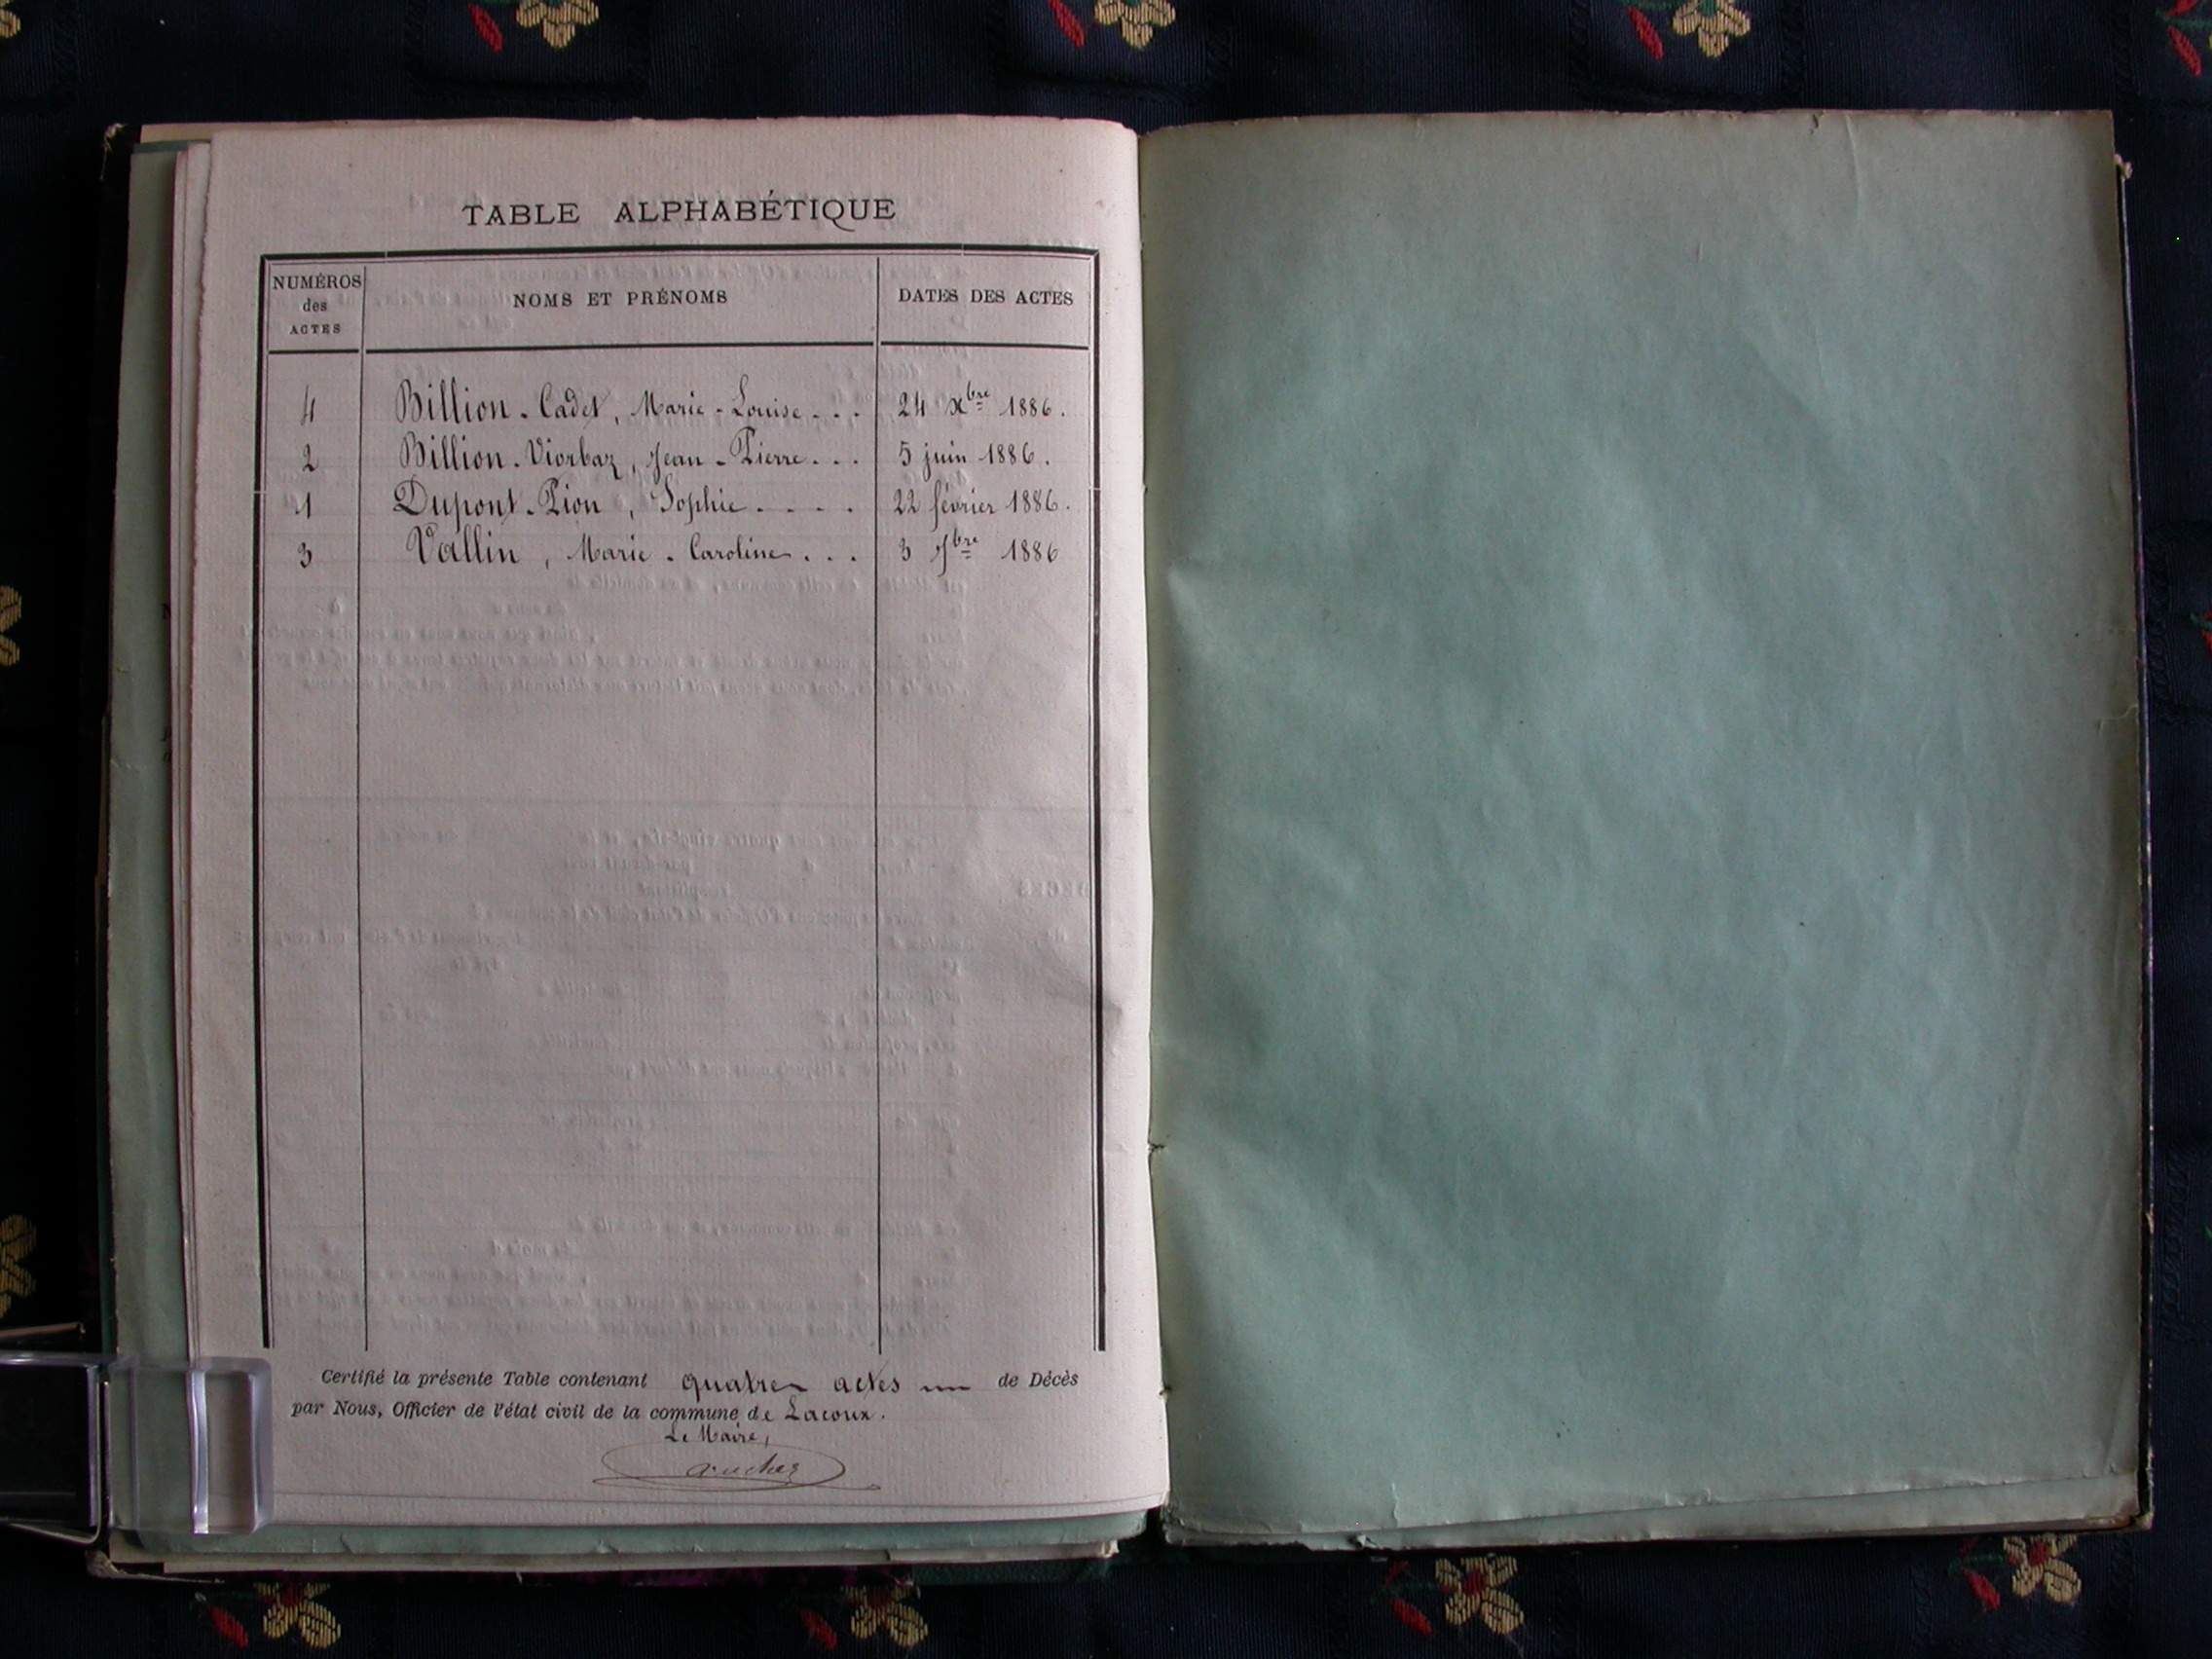 TABLE ALPHABÉTIQUE
NUMÉROS
des
ACTES
NOMS ET PRÉNOMS
DATES DES ACTES
4 Billion-Cadet, Marie-Louise... 24 xbre 1886.
2 Billion-Viorbaz, Jean-Pierre... 5 juin 1886.
1 Dupont-Pion, Sophie.... 22 février 1886.
3 Vallin, Marie-Caroline... 3 7bre 1886
Certifié la présente Table contenant quatre actes de Décès
par Nous, Officier de l'état civil de la commune de Lacoux.
Le Maire,